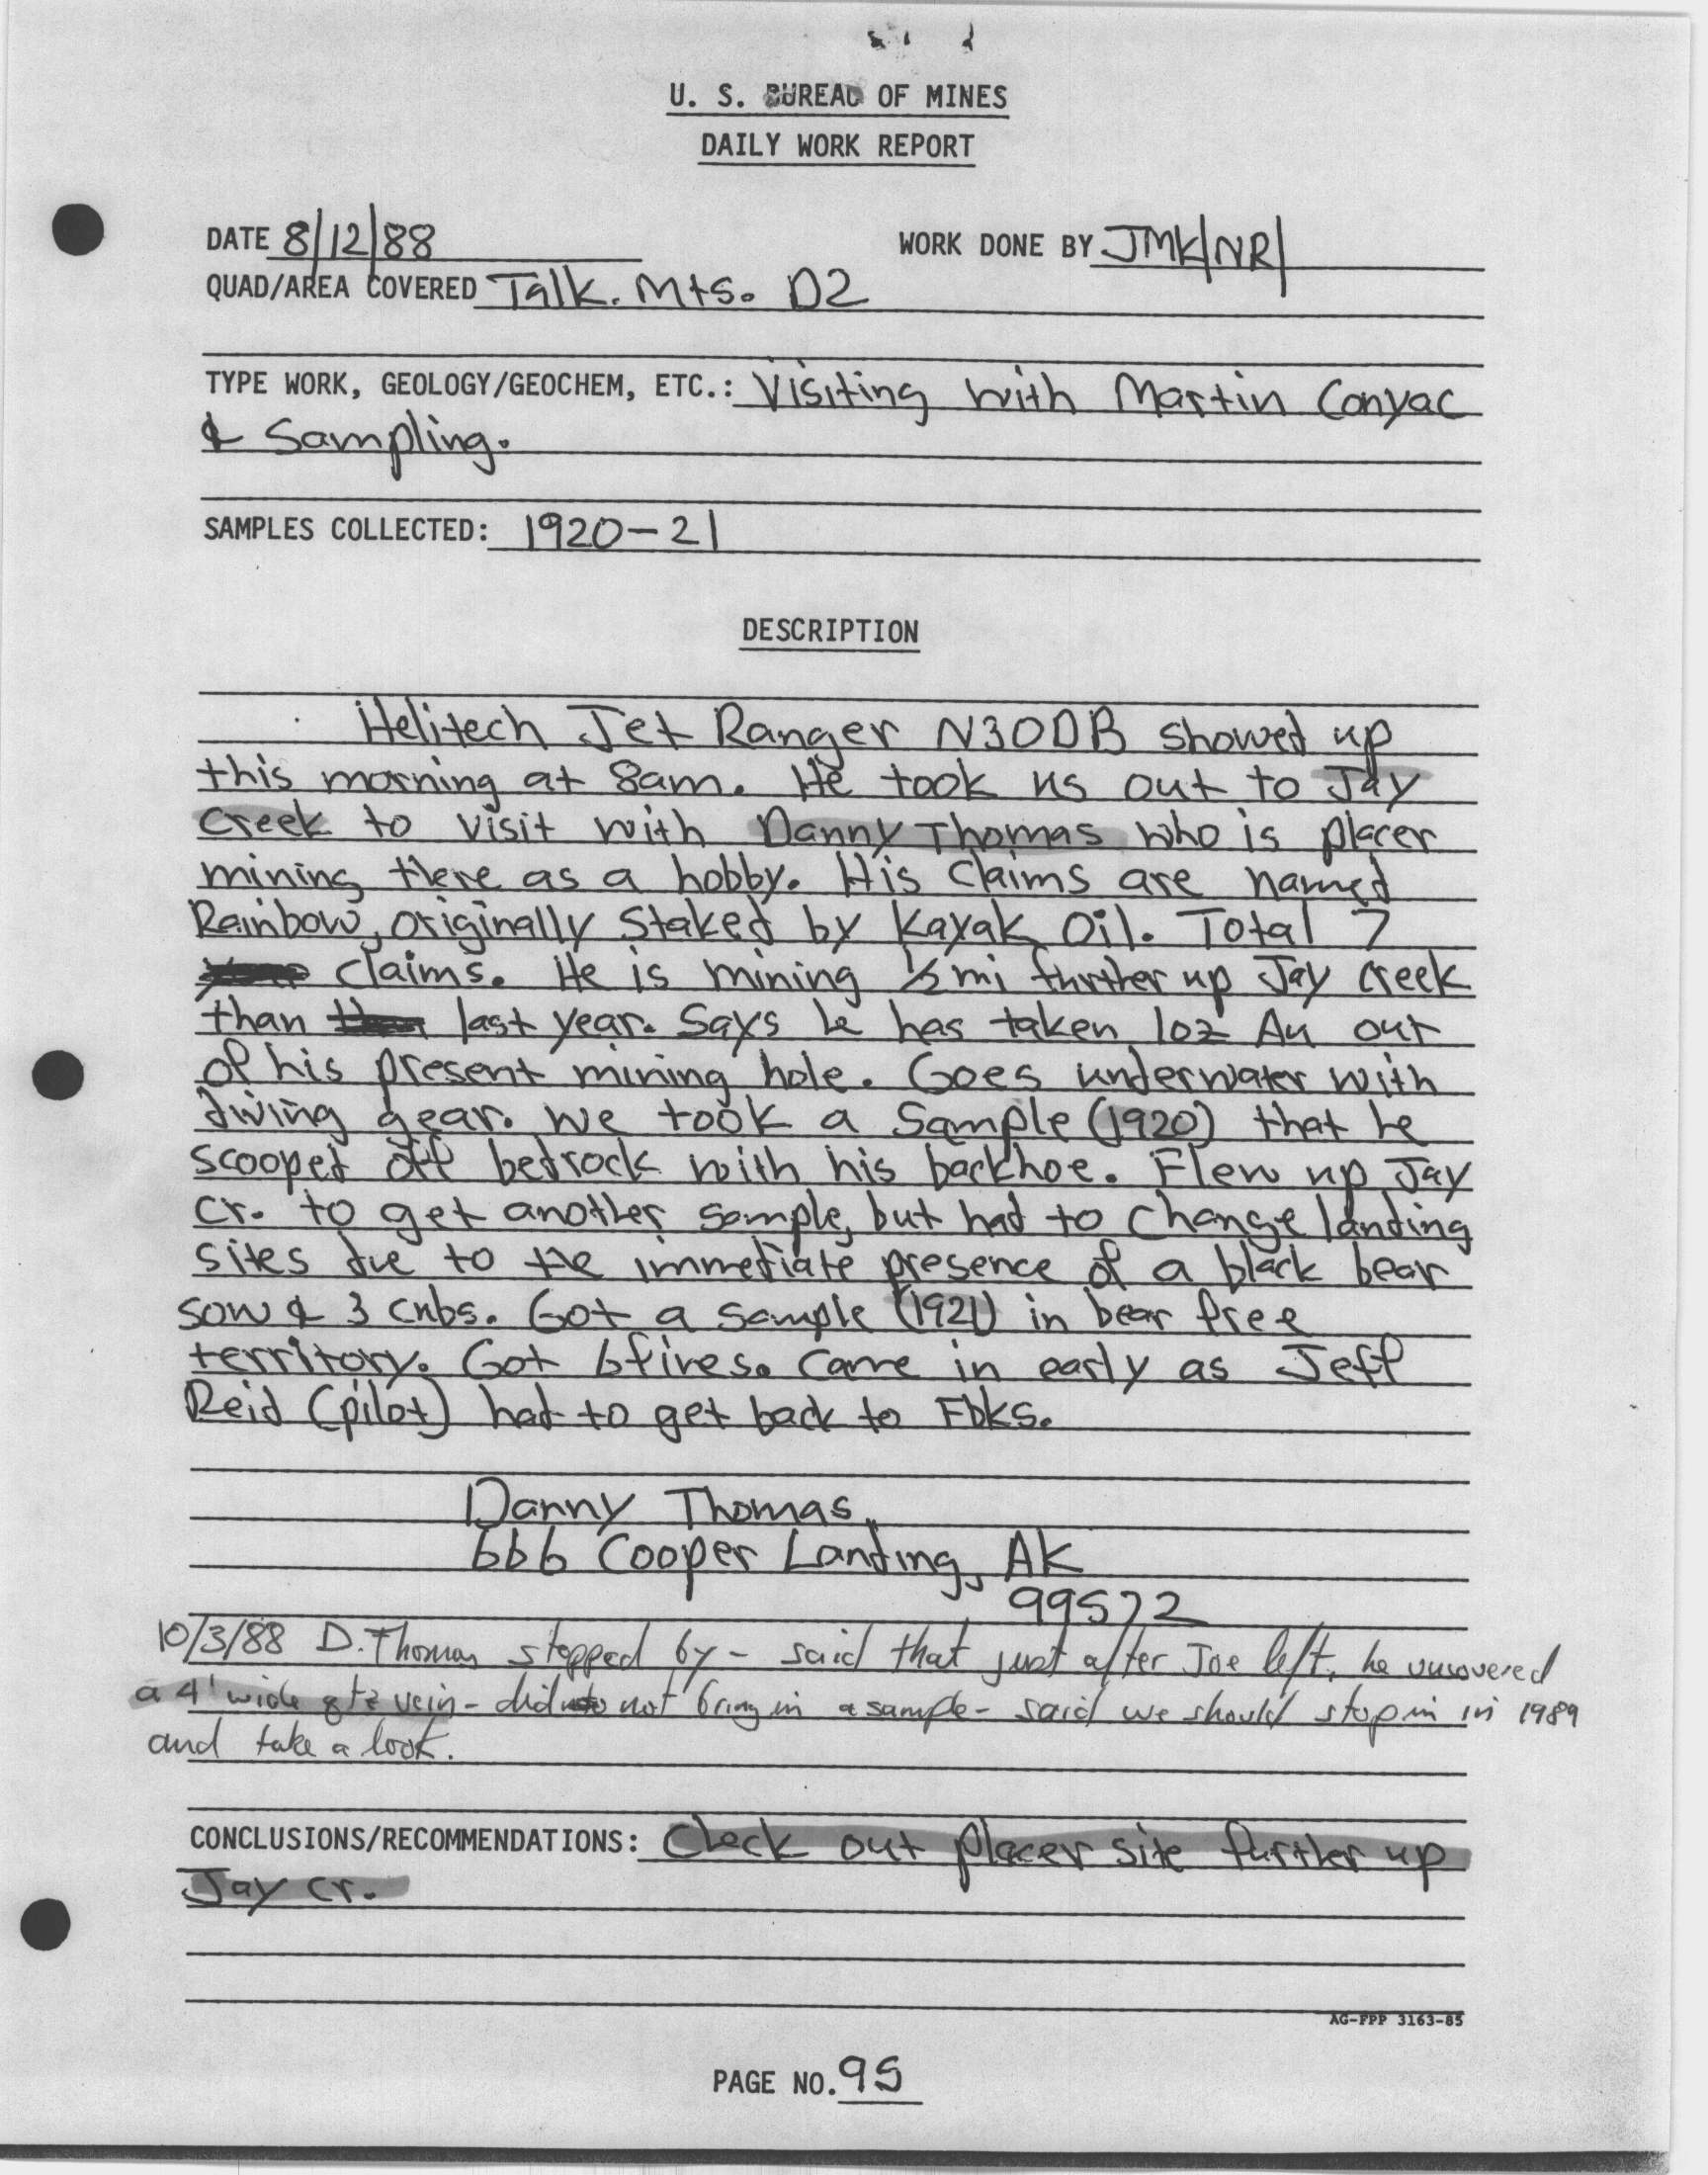 U. S. BUREAU OF MINES
DAILY WORK REPORT
DATE 8/12/88 WORK DONE BY JMK/NR/
QUAD/AREA COVERED Talk. Mts. D2
TYPE WORK, GEOLOGY/GEOCHEM, ETC.: Visiting with Martin Conyac
& Sampling.
SAMPLES COLLECTED: 1920-21
DESCRIPTION
Helitech Jet Ranger N30DB showed up
this morning at 8am. He took us out to Jay
Creek to visit with Danny Thomas who is placer
mining there as a hobby. His claims are named
Rainbow, originally staked by Kayak Oil. Total 7
claims. He is mining 1/2 mi further up Jay Creek
than last year. Says he has taken 1oz Au out
of his present mining hole. Goes underwater with
diving gear. We took a sample (1920) that he
scooped off bedrock with his backhoe. Flew up Jay
Cr. to get another sample, but had to change landing
sites due to the immediate presence of a black bear
sow & 3 cubs. Got a sample (1921) in bear free
territory. Got 6 fives. Came in early as Jeff
Reid (pilot) had to get back to Fbks.
Danny Thomas
666 Cooper Landing, AK
99572
10/3/88 D. Thomas stopped by - said that just after Joe left, he uncovered
a 4' wide qtz vein - did not bring in a sample - said we should stop in in 1989
and take a look.
CONCLUSIONS/RECOMMENDATIONS: Check out placer site further up
Jay Cr.
AG-FPP 3163-85
PAGE NO. 95